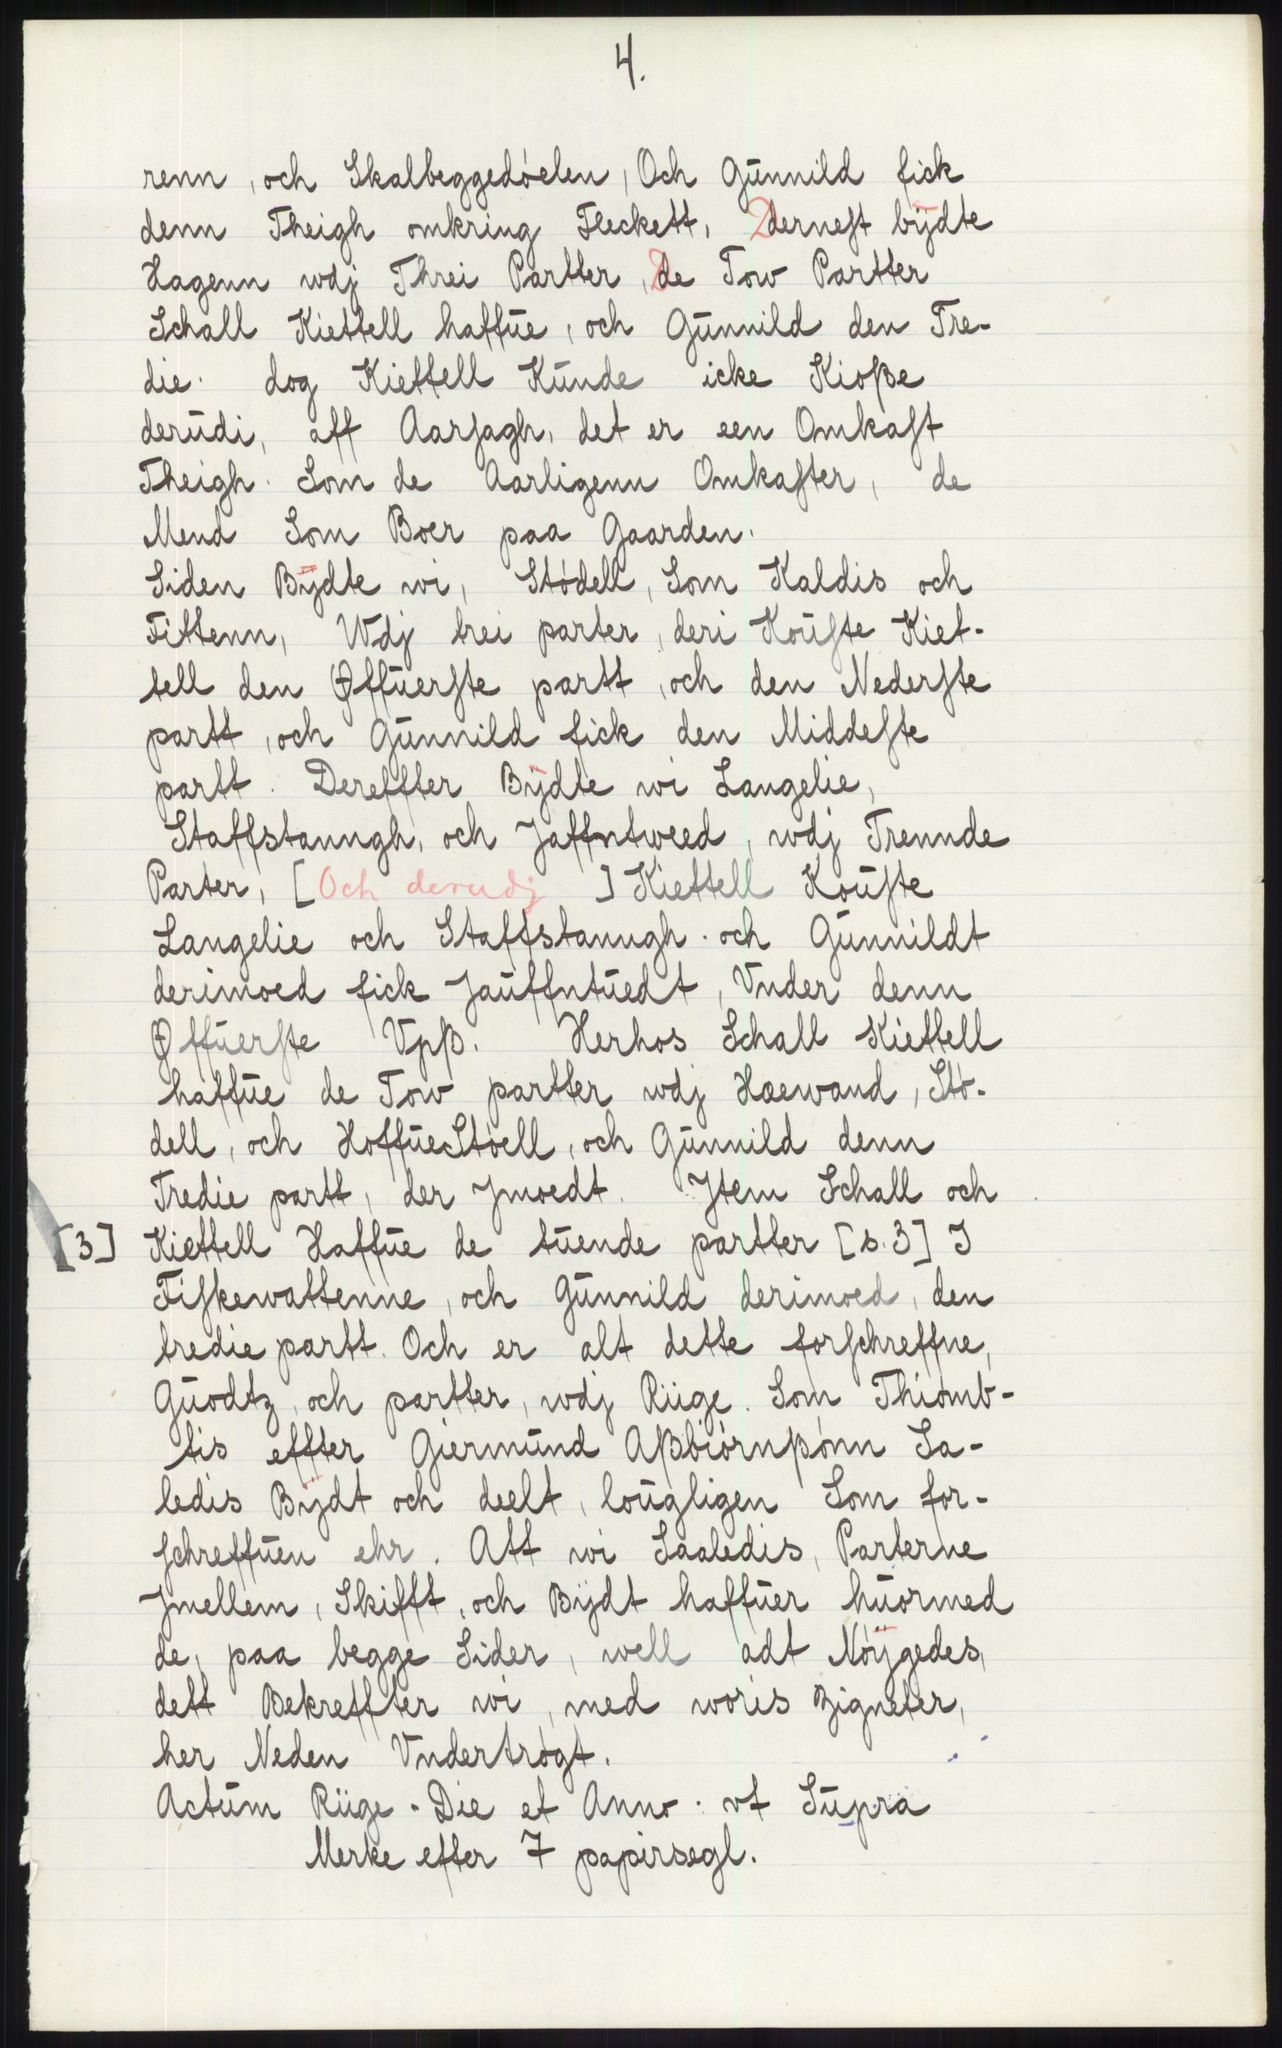 4.
renn, och Skalbeggedóelen, Och Gunnild fick
denn Theigh omkring Fleckett, derneſt bÿdte
Hagenn wdj Threi Partter, de Tow Partter
Schall Kiettell haffue, och Gunnild den Tre-
die. dog Kiettell Kunde icke Kioße
derudi, aff Aarſagh, det er een Omkaſt
Theigh. Som de Aarligenn Omkaſter, de
Mend Som Boer paa Gaarden.
Siden Bÿdte wi, Stódell, Som Kaldis och
Fittenn, Wdj trei parter, deri Kouſte Kiet-
tell den Øffuerſte partt, och den Nederſte
partt, och Gunnild fick den Middeſte
partt. Dereffter Bÿdte wi Langelie,
Staffstanngh, och Jaffntweed, wdj Trennde
Parter, [Och derudj ] Kiettell Kouſte
Langelie och Staffstanngh. och Gunnildt
derimoed fick Jauffntuedt, Vnder denn
Øffuerſte Vpß. Herhos Schall Kiettell
haffue de Tow partter wdj Haewand, Stó-
dell, och HoffueStóell, och Gunnild denn
Tredie partt, der Jmoedt. Jtem Schall och
[3] Kiettell Haffue de tuende partter [s. 3] I
Fiſkewattenne, och Gunnild derimoed, den
tredie partt. Och er alt dette forſchreffne,
Guodtz, och partter, wdj Rüge. Som Thiomb-
tis effter Giermund Aßbiórnßónn Sa-
ledis Bÿdt och deelt, lougligen Som for-
ſchreffuen ehr. Att wi Saaledis, Parterne
Jmellem, Skifft, och Bÿdt haffuer huormed
de, paa begge Sider, well adt Nóÿgedes,
dett Bekreffter wi, med woris Zigneter,
her Neden Vndertrógt.
Actum Rüge. Die et Anno. vt Supra
Merke efter 7 papirsegl.